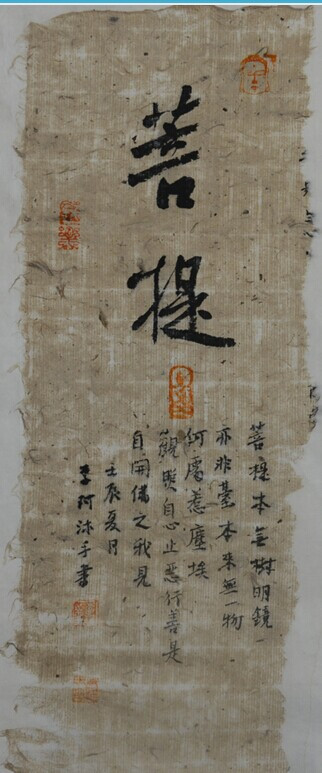 菩提
菩提本無樹明鏡
亦非臺本來無一物
何處惹塵埃
觀照自心止惡行善是
自開佛之我見
壬辰夏月
阿沐手書